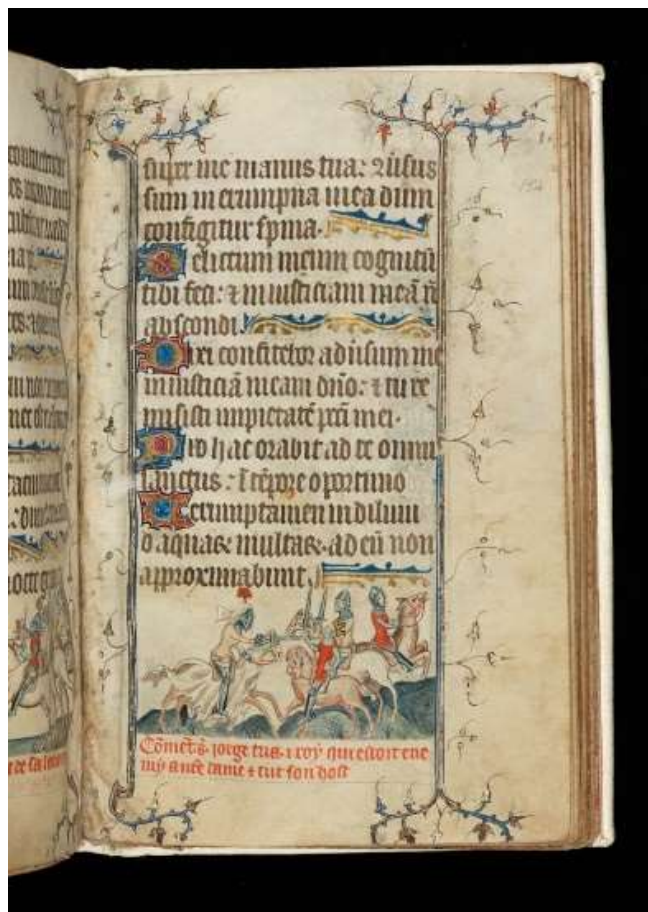 super me manus tua: ⁊ ũsus
sum in erumpna mea dum
configitur spina.
Delictum meum cognitũ
tibi feci: ⁊ iniusticiam meã ñ
abscondi.
Dixi confitebor adũsum me
iniusticiã meam dño: ⁊ tu re
misisti impietatẽ pcc̃i mei.
Pro hac orabit ad te omnis
sanctus: ĩ tẽpore oportuno
Verumptamen in diluui
o aquaꝝ multaꝝ. ad eũ non
approximabunt.
Cõmet .s. iorge tua .i. roy qui estoit ene
my a nr̃e dame ⁊ tut son host